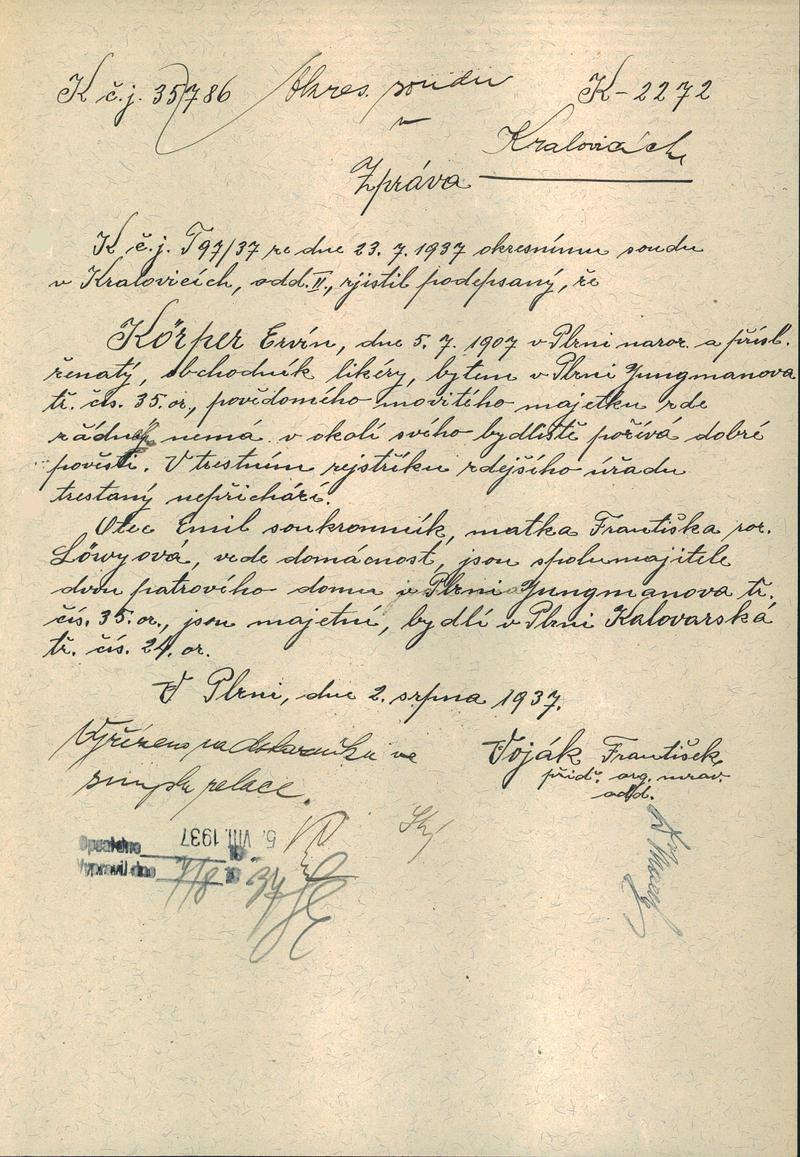 K č.j. 35786 Okres. soudu K-2272
v
Kralovicích
Zpráva
K č.j. T 97/37 ze dne 23. 7. 1937 okresnímu soudu
v Kralovicích, odd. II., zjistil podepsaný, že
Körper Ervín, dne 5. 7. 1907 v Plzni naroz. a přísl.
ženatý, obchodník likéry, bytem v Plzni Jungmanova
tř. čís. 35. or., povědomého movitého majetku zde
žádného nemá. v okolí svého bydliště požívá dobré
pověsti. V trestním rejstříku zdejšího úřadu
trestaný nepřichází.
Otec Emil soukromník, matka Františka roz.
Löwyová, vede domácnost, jsou spolumajitele
dvou patrového domu v Plzni Jungmanova tř.
čís. 35. or., jsou majetní, bydlí v Plzni Kalovarská
tř. čís. 24. or.
V Plzni, dne 2. srpna 1937.
Vyřízeno ve
smyslu relace.
Voják František
přiď. org. mrav.
odd.
5. VIII. 1937
Opsáno dne
Vypravil dne 7/8 37